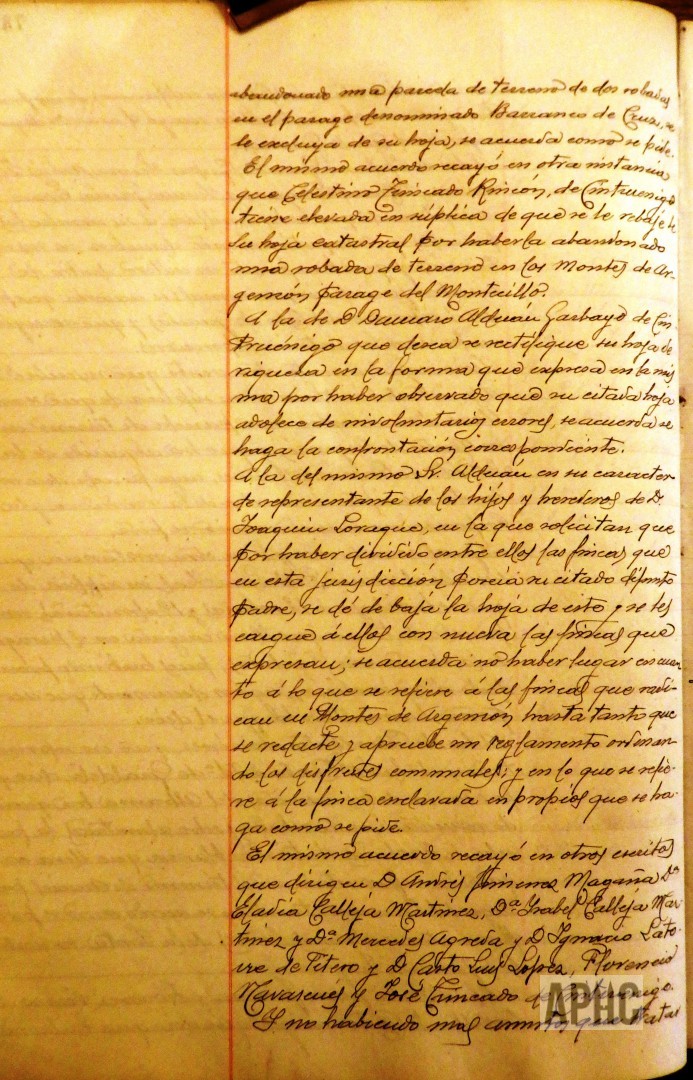 abandonado una pareda de terreno de dos robadas
en el parage denominado Barranco de Cruzu, se
le excluya de su hoja, se acuerda como se pide.
El mismo acuerdo recayó en otra instancia
que Celestino Trincado Rincón, de Cintruenigo
tiene elevada en súplica de que se le rebaje de
su hoja catastral por haberla abandonado
una robada de terreno en los Montes de Ar-
genzón parage del Montecillo.
A la de D. Damaso Alduán Garbayo de Cin-
truénigo que desea se rectifique su hoja de
riqueza en la forma que expresa en la mis
ma por haber observado que su citada hoja
adolece de involuntarios errores, se acuerda se
haga la confrontación correspondiente.
A la del mismo Sr. Alduán en su caracter
de representante de los hijos y herederos de D.
Joaquin Loraque, en la que solicitan que
por haber dividido entre ellos las fincas que
en esta jurisdicción poseia su citado difunto
padre, se dé de baja la hoja de esto y se les
cargue á ellos con nueva las fincas que
expresan; se acuerda no haber lugar en cuan
to á lo que se refiere á las fincas que radi-
can en Montes de Argenzón hasta tanto que
se redacte y apruebe un reglamento ordenan-
do los disfrutes comunales; y en lo que se refie-
re á la finca enclavada en propios que se ha-
ga como se pide.
El mismo acuerdo recayó en otros escritos
que dirigen D. Andrés Jimenez Magaña Dª
Eladia Calleja Martinez, Dª Ysabel Calleja Mar
tinez y Dª Mercedes Agreda y D. Ignacio Lato-
rre de Fitero y D. Casto Luis Lopez, Florencio
Navascués y José Trincado de Cintruenigo.
Y no habiendo mas asuntos que tratar
APHC